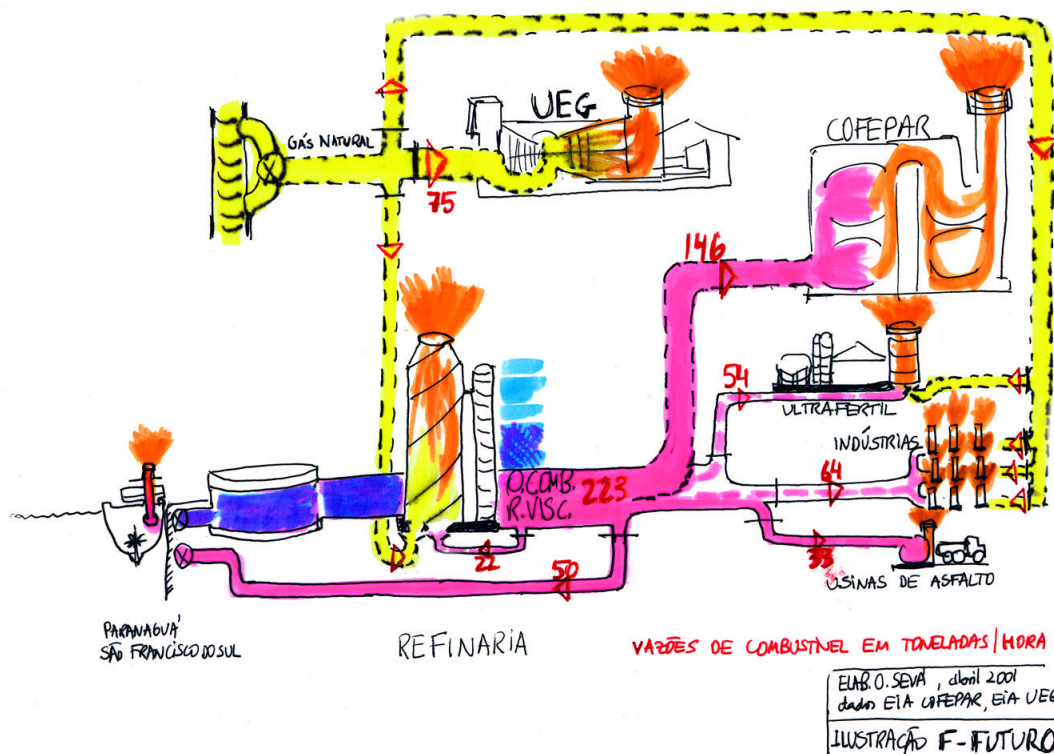 UEG
GÁS NATURAL
75
COFEPAR
146
54
ULTRAFERTIL
INDÚSTRIAS
O.COMB. 223
R.VISC.
64
22
50
33
USINAS DE ASFALTO
PARANAGUÁ
SÃO FRANCISCO DO SUL
REFINARIA
VAZÕES DE COMBUSTÍVEL EM TONELADAS/HORA
ELAB. O. SEVÁ, abril 2001
dados EIA COFEPAR, EIA UEG
ILUSTRAÇÃO F-FUTURO